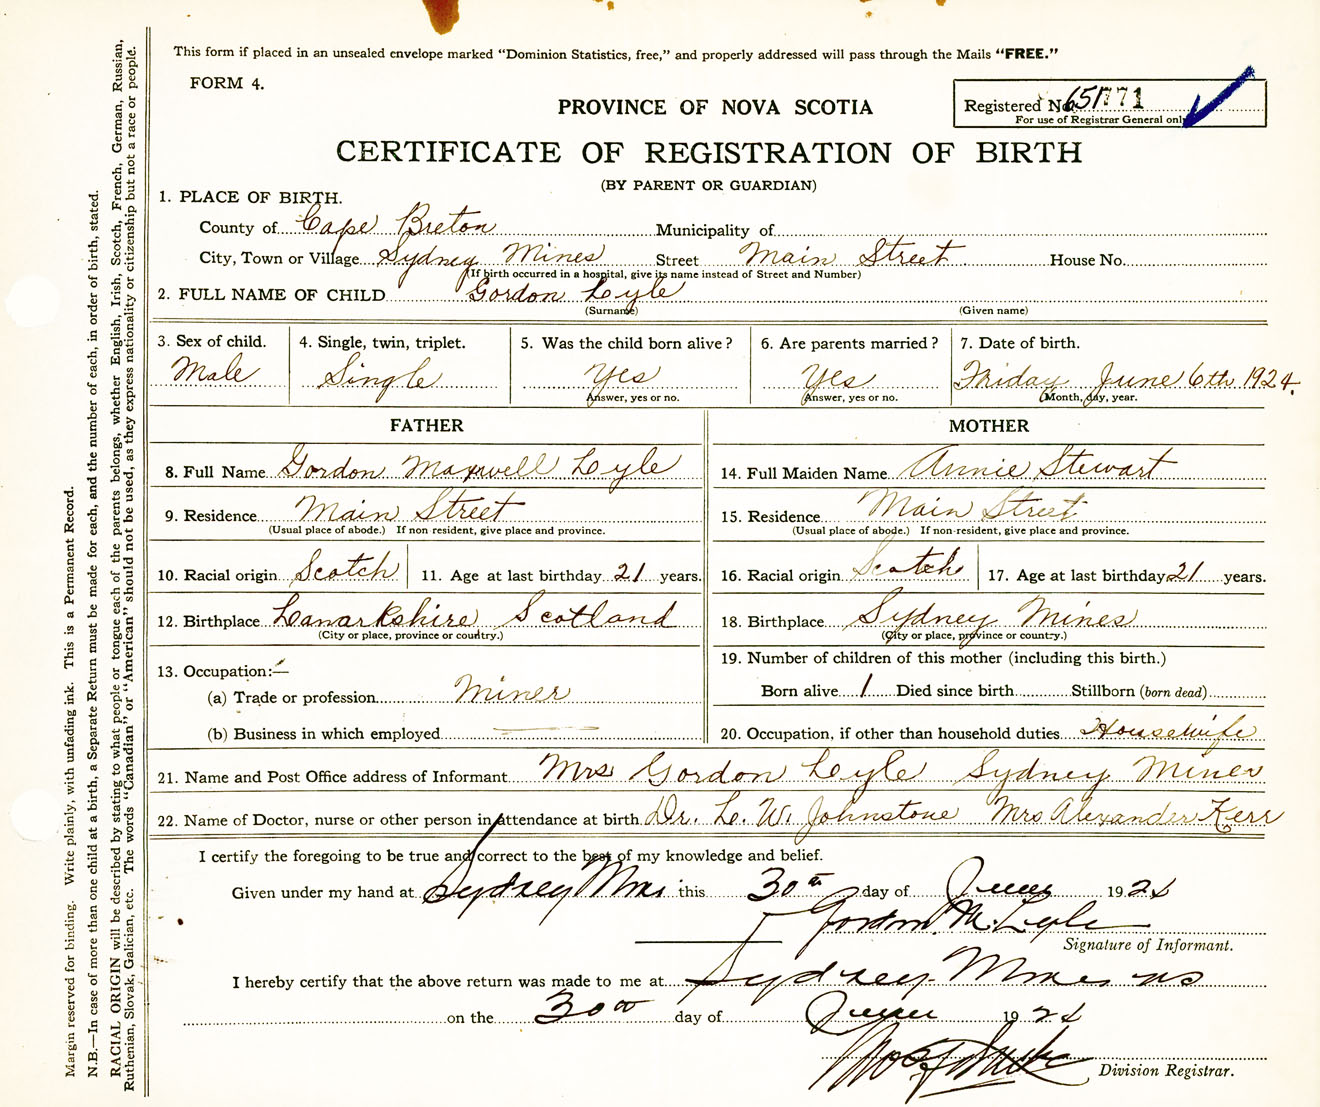 This form if placed in an unsealed envelope marked "Dominion Statistics, free," and properly addressed will pass through the Mails "FREE."
FORM 4.
Registered No. 651771
For use of Registrar General only
PROVINCE OF NOVA SCOTIA
CERTIFICATE OF REGISTRATION OF BIRTH
(BY PARENT OR GUARDIAN)
1. PLACE OF BIRTH.
County of Cape Breton Municipality of
City, Town or Village Sydney Mines Street Main Street House No.
(If birth occurred in a hospital, give its name instead of Street and Number)
2. FULL NAME OF CHILD Gordon Lyle
(Surname) (Given name)
3. Sex of child. 4. Single, twin, triplet. 5. Was the child born alive? 6. Are parents married? 7. Date of birth.
Male Single Yes Yes Friday June 6th 1924.
Answer, yes or no. Answer, yes or no. (Month, day, year.
FATHER MOTHER
8. Full Name Gordon Maxwell Lyle 14. Full Maiden Name Annie Stewart
9. Residence Main Street 15. Residence Main Street
(Usual place of abode.) If non-resident, give place and province. (Usual place of abode.) If non-resident, give place and province.
10. Racial origin Scotch 11. Age at last birthday 21 years. 16. Racial origin Scotch 17. Age at last birthday 21 years.
12. Birthplace Lanarkshire Scotland 18. Birthplace Sydney Mines
(City or place, province or country.) (City or place, province or country.)
13. Occupation:— 19. Number of children of this mother (including this birth.)
(a) Trade or profession Miner Born alive 1 Died since birth Stillborn (born dead)
(b) Business in which employed 20. Occupation, if other than household duties Housewife
21. Name and Post Office address of Informant Mrs Gordon Lyle Sydney Mines
22. Name of Doctor, nurse or other person in attendance at birth Dr. L. W. Johnstone Mrs Alexander Kerr
I certify the foregoing to be true and correct to the best of my knowledge and belief.
Given under my hand at Sydney Mines this 30th day of June 1924
Gordon M. Lyle
Signature of Informant.
I hereby certify that the above return was made to me at Sydney Mines NS
on the 30th day of June 1924
Division Registrar.
Margin reserved for binding. Write plainly, with unfading ink. This is a Permanent Record.
N.B.—In case of more than one child at a birth, a Separate Return must be made for each, and the number of each, in order of birth, stated.
RACIAL ORIGIN will be described by stating to what people or tongue each of the parents belongs, whether English, Irish, Scotch, French, German, Russian,
Ruthenian, Slovak, Galician, etc. The words "Canadian" or "American" should not be used, as they express nationality or citizenship but not a race or people.